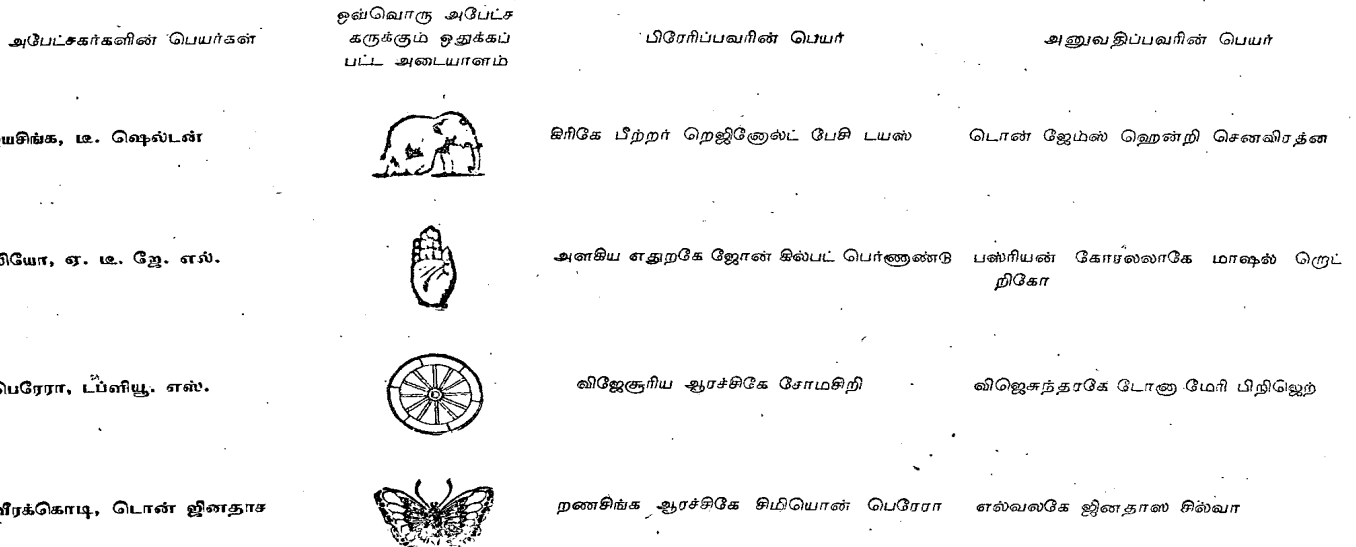 அபேட்சகர்களின் பெயர்கள்
ஒவ்வொரு அபேட்ச
கருக்கும் ஒதுக்கப்
பட்ட அடையாளம்
பிரேரிப்பவரின் பெயர்
அனுவதிப்பவரின் பெயர்
டீ. ஷெல்டன்
கிரிகே பீற்றர் றெஜினோல்ட் பேசி டயஸ்
டொன் ஜேம்ஸ் ஹென்றி செனவிரத்ன
ஏ. டீ. ஜே. எல்.
அளகிய எதுறகே ஜோன் கில்பட் பெர்ணாண்டு
பஸ்ரியன் கோரல்லாகே மாஷல் றெட்
றிகோ
பெரேரா, டப்ளியூ. எஸ்.
விஜேசூரிய ஆரச்சிகே சோமசிறி
விஜெசுந்தரகே டோனா மேரி பிறிஜெற்
வீரக்கொடி, டொன் ஜினதாச
றணசிங்க ஆரச்சிகே சிமியொன் பெரேரா
எல்வலகே ஜினதாஸ சில்வா